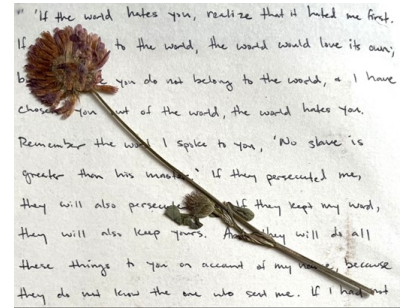 " 'If the world hates you, realize that it hated me first.
If to the world, the world would love its own;
you do not belong to the world, & I have
chosen you out of the world, the world hates you.
Remember the word I spoke to you, 'No slave is
greater than his master.' If they persecuted me,
they will also persecute If they kept my word,
they will also keep yours. And they will do all
these things to you on account of my name, because
they do not know the one who sent me. If I had not